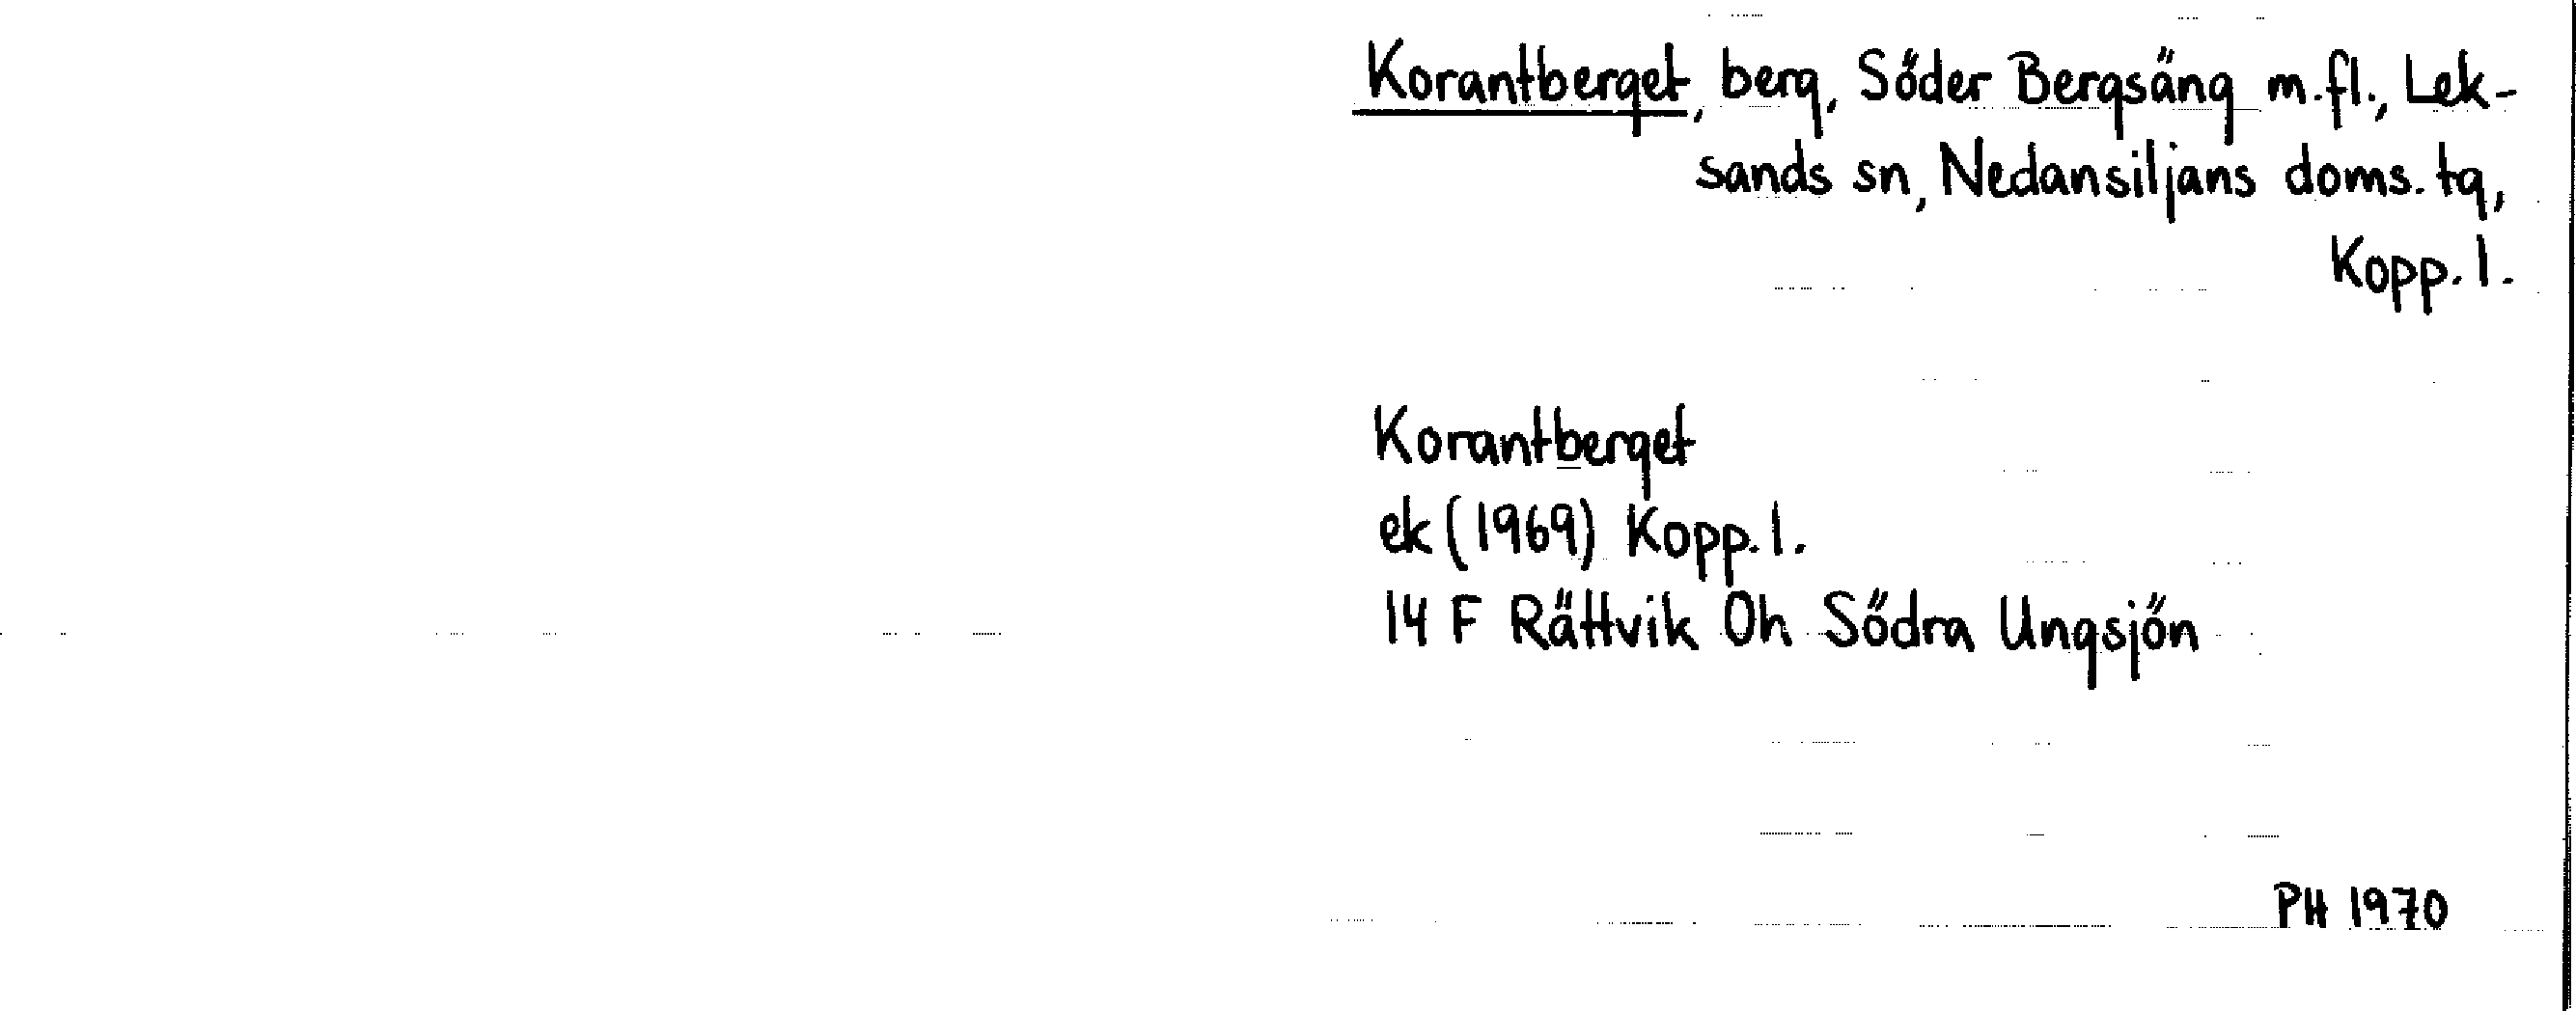 Korantberget, berg, Söder Bergsäng m.fl., Lek-
sands sn, Nedansiljans doms. tg,
Kopp. l.
Korantberget
ek (1969) Kopp. l.
14 F Rättvik Oh Södra Ungsjön
PH 1970